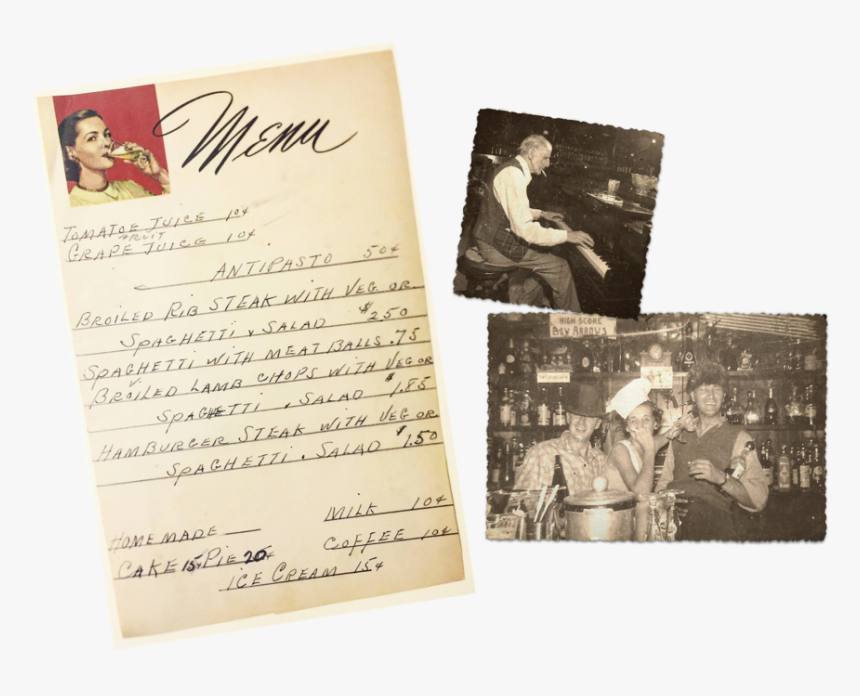 Menu
TOMATOE JUICE 10¢
FRUIT
GRAPE JUICE 10¢
ANTIPASTO 50¢
BROILED RIB STEAK WITH VEG OR
SPAGHETTI & SALAD $2.50
SPAGHETTI WITH MEAT BALLS .75
BROILED LAMB CHOPS WITH VEG OR
SPAGHETTI . SALAD $1.85
HAMBURGER STEAK WITH VEG OR
SPAGHETTI . SALAD $1.50
MILK 10¢
HOMEMADE
COFFEE 10¢
CAKE 15¢ PIE 20¢
ICE CREAM 15¢
HIGH SCORE